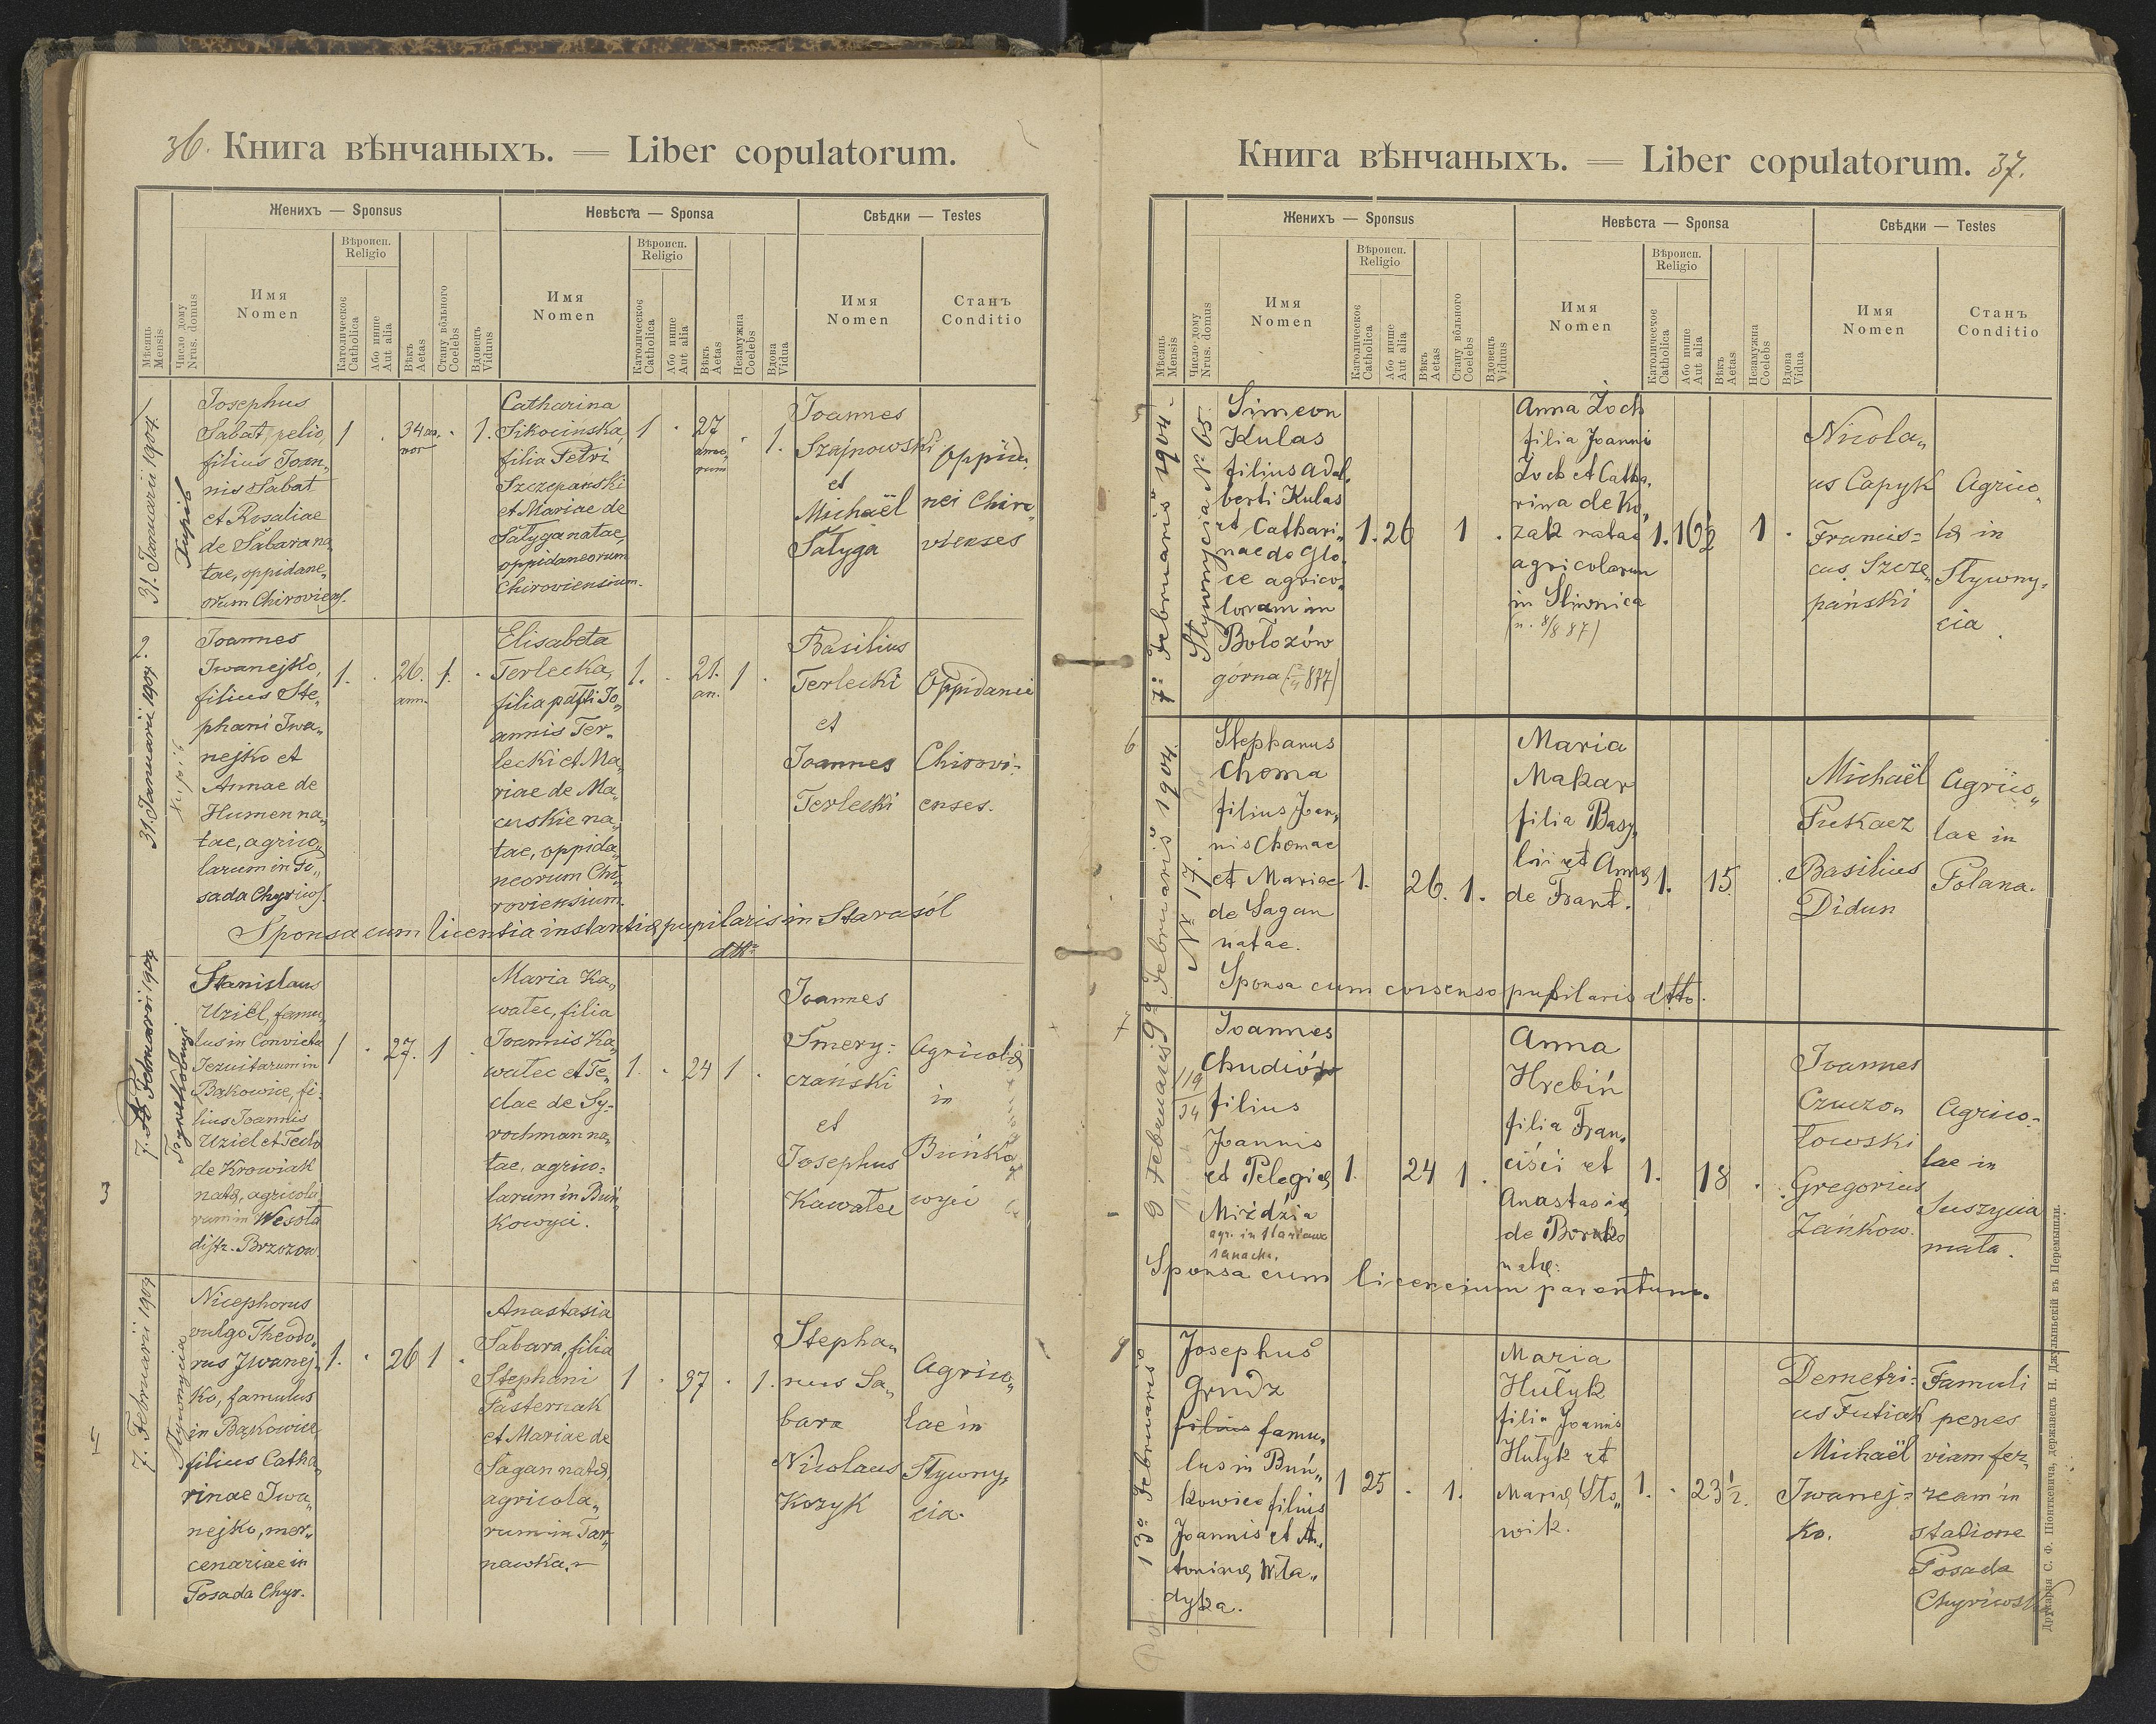 36.
Книга вѣнчаныхъ. — Liber copulatorum.
Женихъ — Sponsus
Невѣста — Sponsa
Свѣдки — Testes
Мѣсяць
Mensis
Число дому
Nrus. domus
Имя
Nomen
Вѣроисп.
Religio
Католическое
Catholica
Або инше
Aut alia
Вѣкъ
Aetas
Стану вôльного
Coelebs
Вдовець
Viduus
Имя
Nomen
Вѣроисп.
Religio
Католическое
Catholica
Або инше
Aut alia
Вѣкъ
Aetas
Незамужна
Coelebs
Вдова
Vidua
Имя
Nomen
Станъ
Conditio
1
31. Januarii 1904.
Josephus
Sabat, pelio,
filius Joan„
nis Sabat
et Rosaliae
de Sabara na„
tae, oppidane„
orum Chiroviens.
1
34 an„
nor
1.
Catharina
Sikocinska,
filia Petri
Szczepanski
et Mariae de
Satyga natae,
oppidaneorum
Chiroviensium.
1
27
anno„
rum
1.
Joannes
Szajnowski
et
Michaël
Satyga
Oppida„
nei Chiro„
vienses
2.
31. Januarii 1904
Joannes
Iwanejko,
filius Ste„
phani Iwa„
nejko et
Annae de
Humen na„
tae, agrico„
larum in Po„
sada Chyrows.
1.
26.
ann.
1.
Elisabeta
Terlecka,
filia pdfti Jo„
annis Ter„
lecki et Ma„
riae de Ma„
cuskie na„
tae, oppida„
neorum Chi„
roviensium.
1.
21.
an.
1
Basilius
Terlecki
et
Joannes
Terlecki
Oppidanei
Chirovi„
enses.
Sponsa cum licentia instantiae pupilaris in Starasól
dtto
3
7. Februarii 1904
Stanislaus
Uziel, famu„
lus in Convictu
Jezuitarum in
Bąkowice, fi„
lius Joannis
Uziel et Teclae
de Krowiak
natae, agricola
rum in Wesoła
distr. Brzozow.
1
27.
1
Maria Ka„
watec, filia
Joannis Ka„
watec et Te„
clae de Sy„
rochman na„
tae, agrico„
larum in Buń„
kowyci.
1.
24
1
Joannes
Smery„
czański
et
Josephus
Kawatec
Agricolae
in
Buńko„
wyci
4
7. Februarii 1904
Stywnycia
Nicephorus
vulgo Theodo„
rus Iwanej„
ko, famulus
in Bąkowice
filius Catha„
rinae Iwa„
nejko, mer„
cenariae in
Posada Chyr.
1.
26
1
Anastasia
Sabara, filia
Stephani
Pasternak
et Mariae de
Sagan natae,
agricola„
rum in Tar„
nawka.
1
37
1.
Stepha„
nus Sa„
bara
Nicolaus
Kozyk
Agrico„
lae in
Stywny„
cia.
Книга вѣнчаныхъ. — Liber copulatorum.
37.
Женихъ — Sponsus
Невѣста — Sponsa
Свѣдки — Testes
Мѣсяць
Mensis
Число дому
Nrus. domus
Имя
Nomen
Вѣроисп.
Religio
Католическое
Catholica
Або инше
Aut alia
Вѣкъ
Aetas
Стану вôльного
Coelebs
Вдовець
Viduus
Имя
Nomen
Вѣроисп.
Religio
Католическое
Catholica
Або инше
Aut alia
Вѣкъ
Aetas
Незамужна
Coelebs
Вдова
Vidua
Имя
Nomen
Станъ
Conditio
5
7o Februaris 1904
Stywnycia No 65.
Simeon
Kulas
filius Adal„
berti Kulas
et Cathari„
nae de Glo„
ce agrico„
loram in
Bołozów
górna
1.
26
1
Anna Zoch
filia Joanni
Zoch et Catha„
rina de Ko„
zak natae
agricolarum
in Sliwnica
(n. 8/8 87)
1.
16 1/2
1
Nicola„
us Capyk
Francis=
cus Szcze„
pański
Agrico„
lae in
Stywny„
cia
6
9o Februaris 1904.
No 17.
Stephanus
Choma
filius Joan„
nis Chomae
et Mariae
de Sagan
natae.
1.
26.
1.
Maria
Makar
filia Basy„
lii et Annae
de Frant.
1.
15.
Michaël
Pukacz
Basilius
Didun
Agrico„
lae in
Polana.
Sponsa cum consenso pupilaris dtto.
7
9 Februaris
119
34
Joannes
Chudiów
filius
Joannis
et Pelegiae
Miździa
1.
24
1.
Anna
Hrebiń
filia Fran„
cisci et
Anastasiae
de Borko
natae.
1.
18
Joannes
Czuczo„
łowski
Gregorius
Zańkow.
Agrico„
lae in
Suszycia
mała.
Sponsa cum licencium parentum.
13o Februaris
Josephus
Grudz
filius famu„
lus in Buń„
kowice filius
Joannis et An„
toninae Wła„
dyka.
1
25
1.
Maria
Hułyk
filia Joannis
Hułyk et
Mariae Sto„
wik.
1.
23 1/2.
Demetri=
us Futiak
Michaël
Iwanej=
ko.
Famuli
penes
viam fer„
ream in
stadione
Posada
Chyriwska
Друкарня С. Ф. Піонткевича, державець Н. Джулыньскій въ Перемышли.